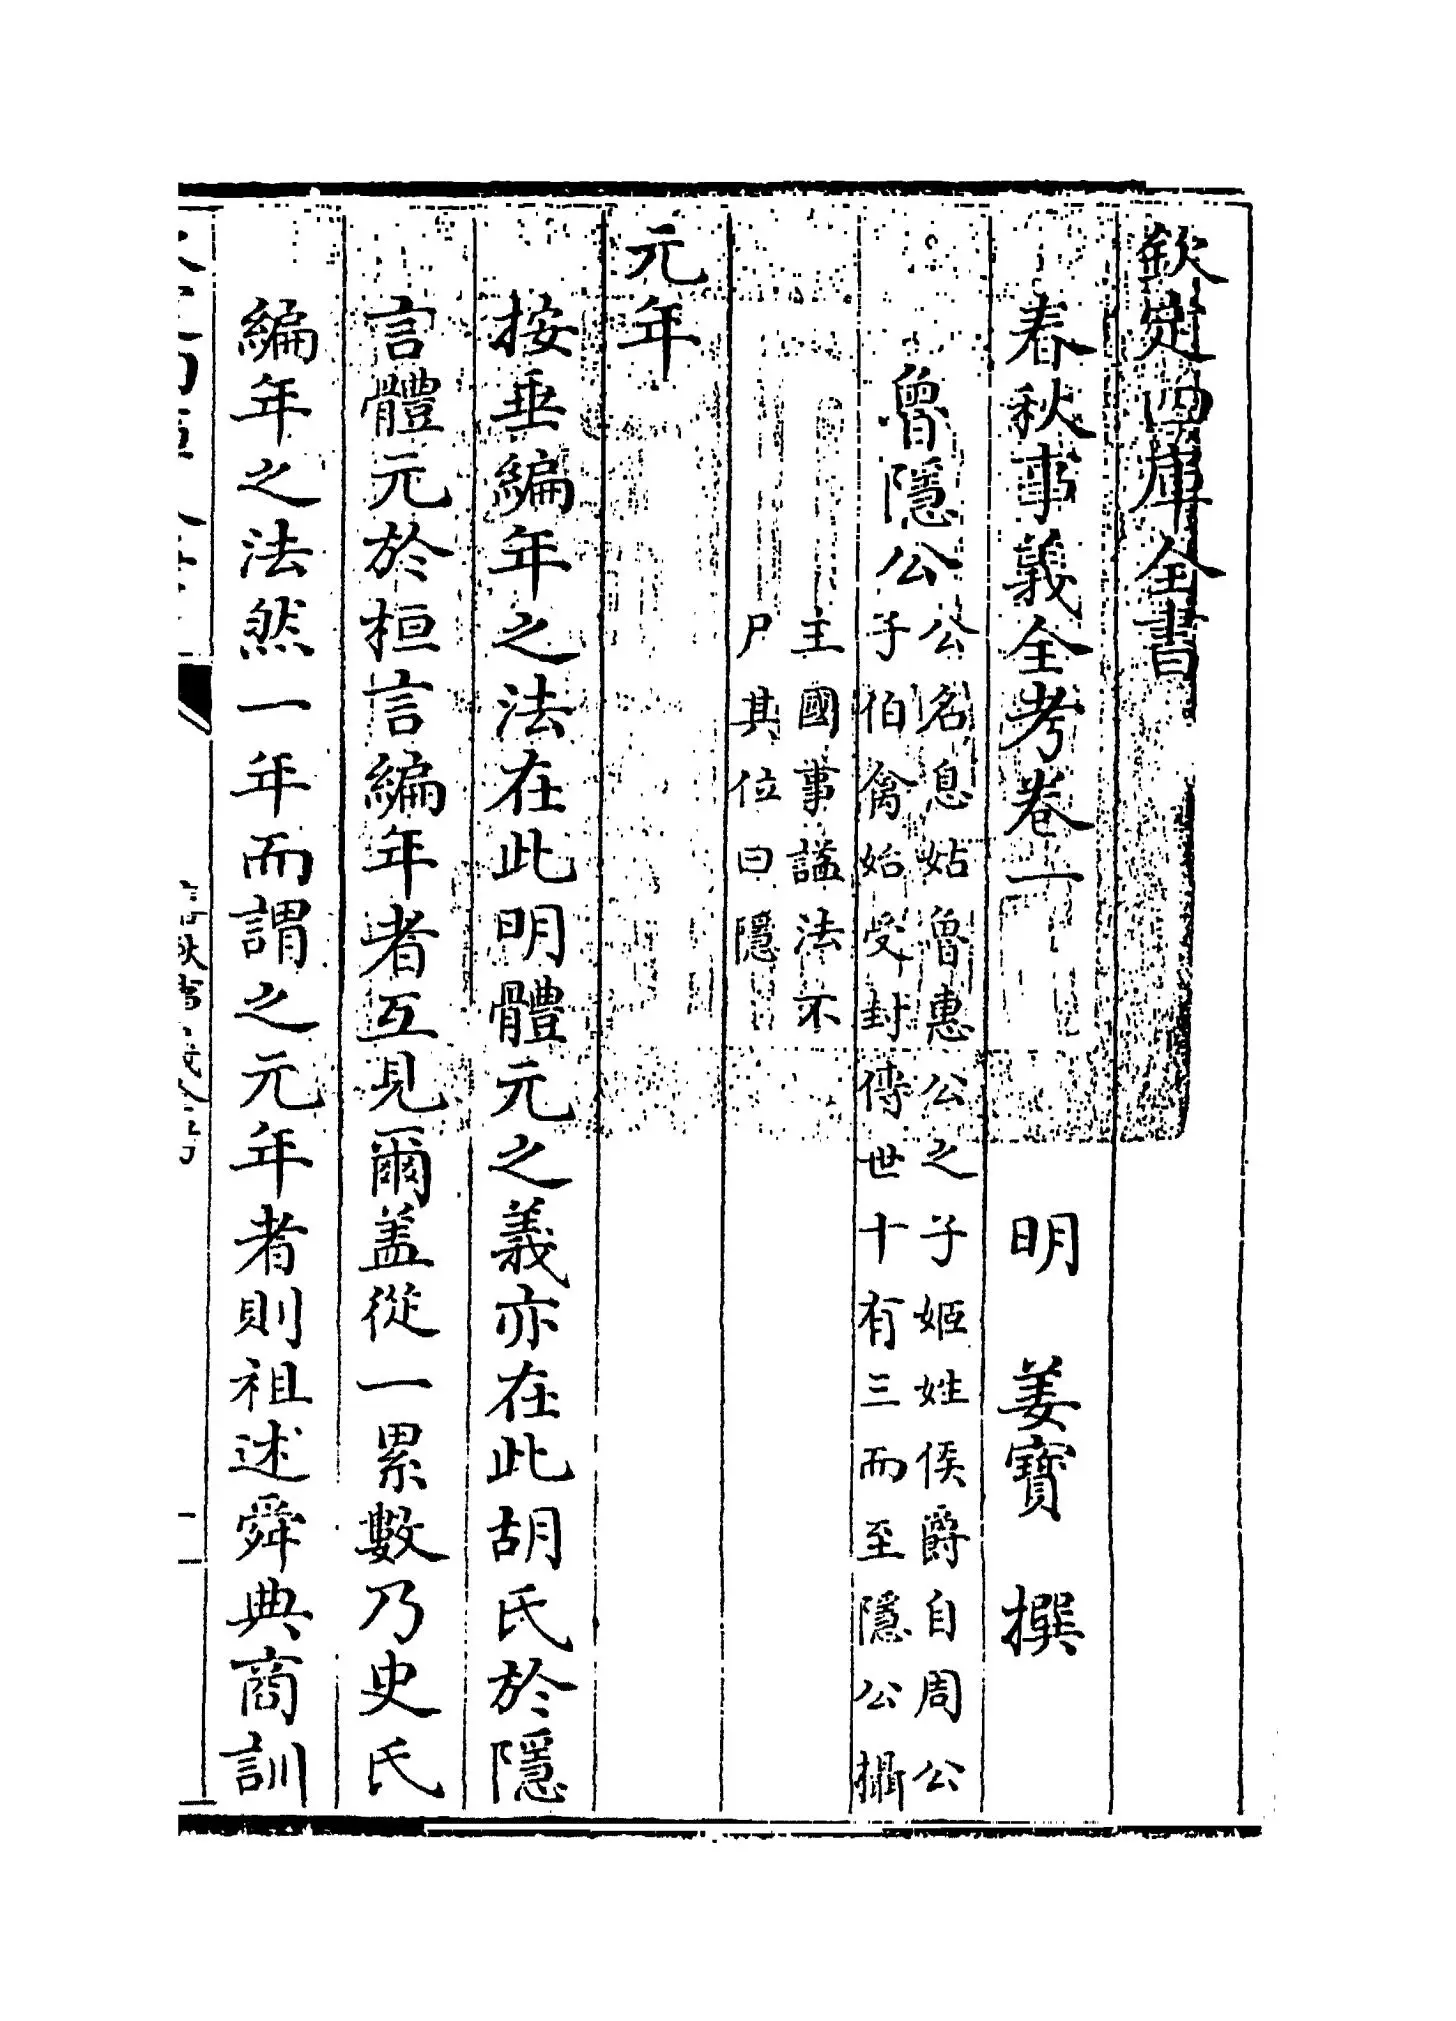 欽定四庫全書
春秋事義全考卷一
明 姜寶 撰
魯隱公
公名息姑魯惠公之子姬姓侯爵自周公
子伯禽始受封傳世十有三而至隱公攝
主國事諡法不
尸其位曰隱
元年
按垂編年之法在此明體元之義亦在此胡氏於隱
言體元於桓言編年者互見爾盖從一累數乃史氏
編年之法然一年而謂之元年者則祖述舜典商訓